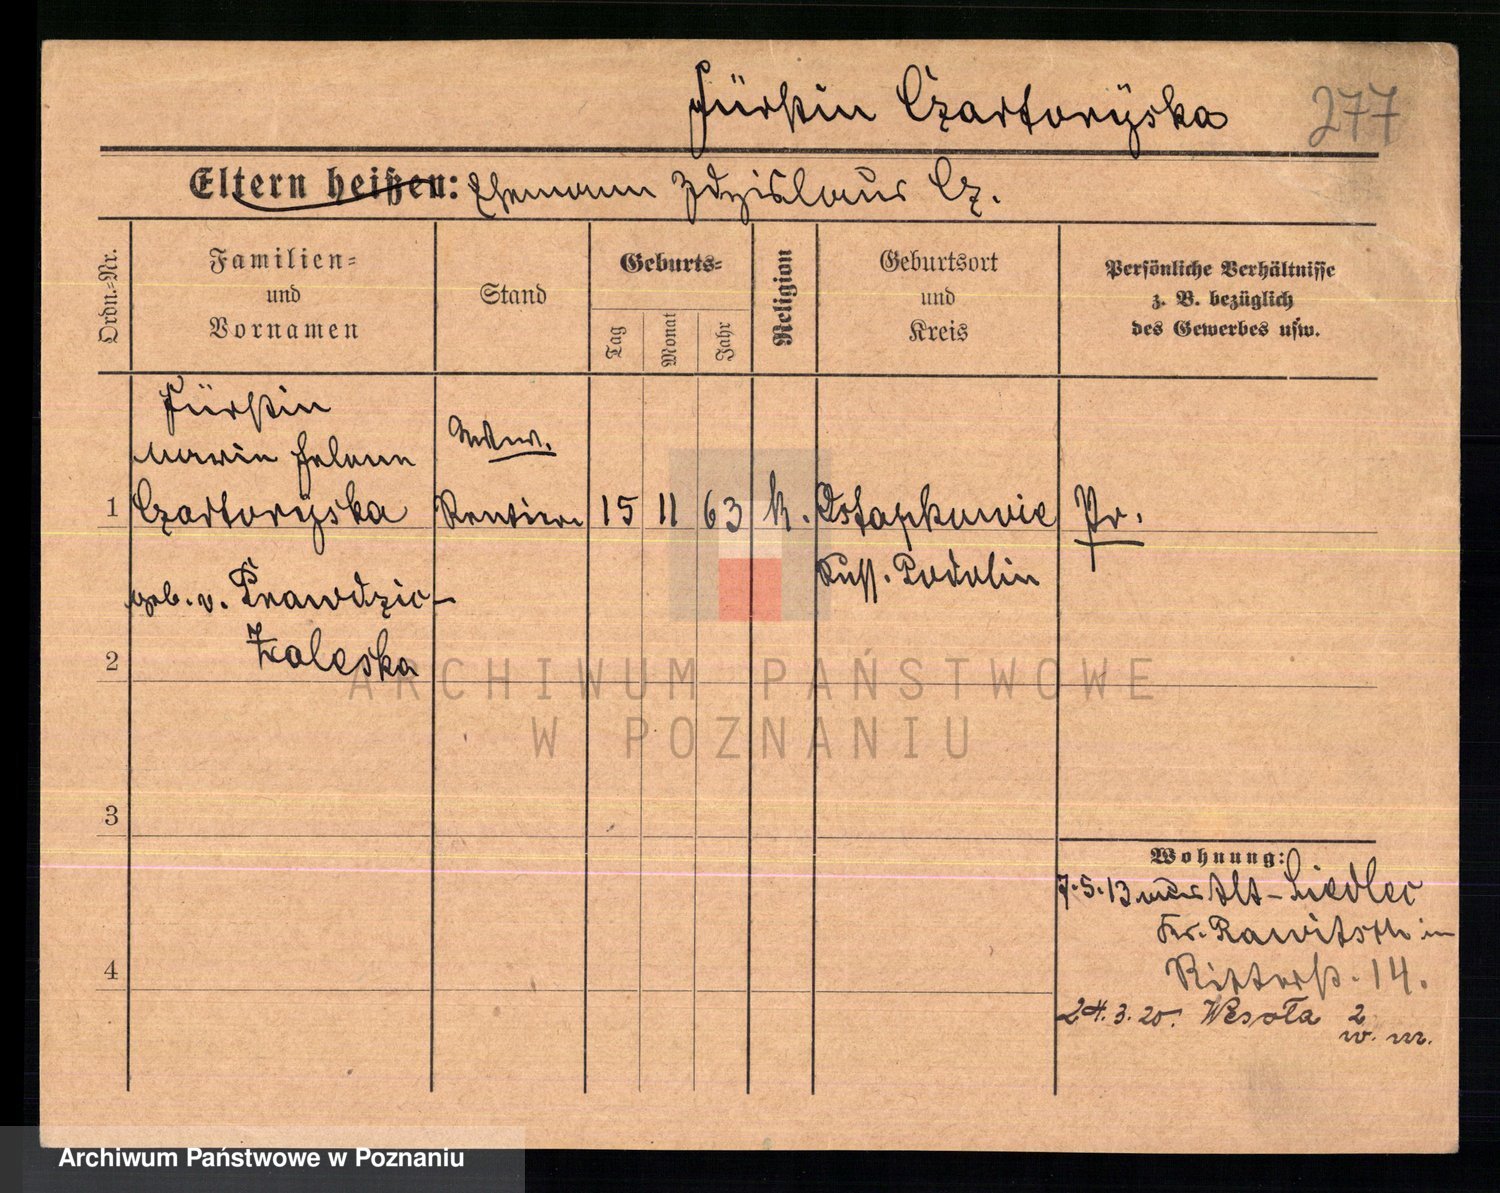 Fürstin Czartorÿska
277
Eltern heißen: Ehemann Zdzislaus Cz.
Ordn.=Nr.
Familien=
und
Vornamen
Stand
Geburts=
Tag
Monat
Jahr
Religion
Geburtsort
und
Kreis
Persönliche Verhältnisse
z. B. bezüglich
des Gewerbes usw.
Fürstin
Maria Helene
1 Czartorÿska Rentiere 15 11 63 k. Ostapkowie Pr.
geb. v. Prawdzic- Russ. Podolin
2 Zaleska
3
4
Wohnung:
7.5.13 Alt-Siedlec
Kr. Rawitsch in
Ritterst. 14.
24.3.20. Wesoła 2
w. m.
ARCHIWUM PAŃSTWOWE
W POZNANIU
Archiwum Państwowe w Poznaniu